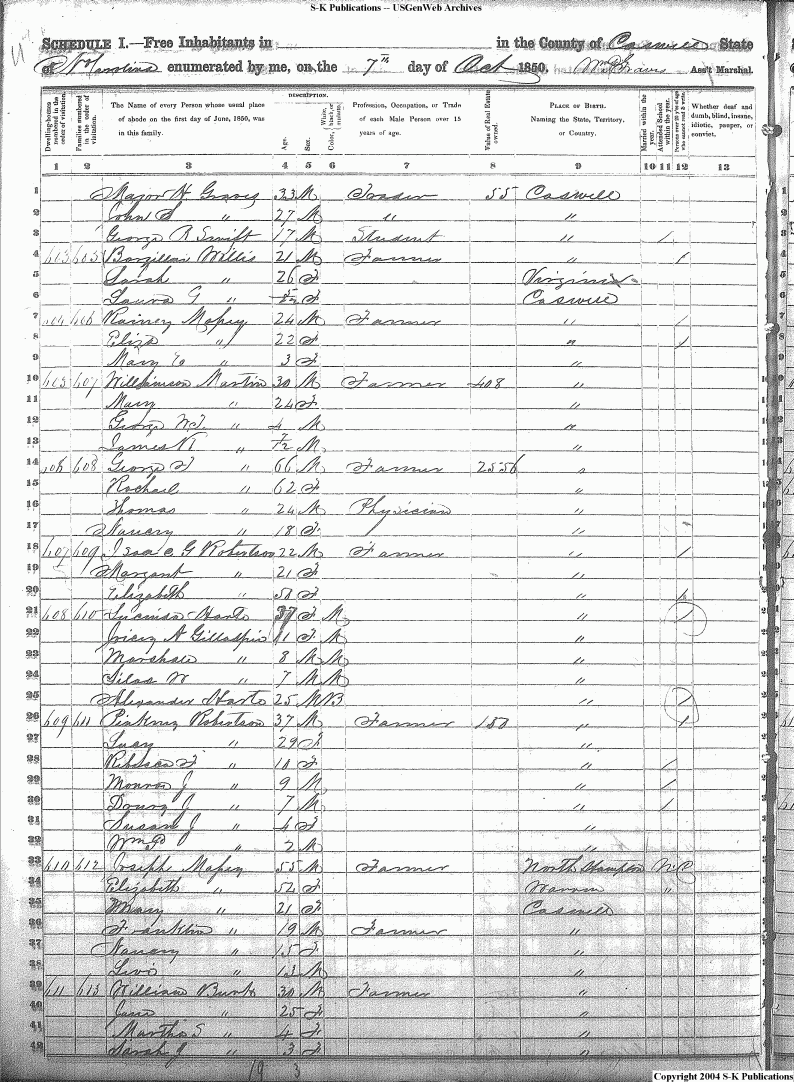 S-K Publications -- USGenWeb Archives
SCHEDULE I.—Free Inhabitants in in the County of Caswell State
of N Carolina enumerated by me, on the 7th day of Oct 1850. Ass't Marshal.
DESCRIPTION.
Dwelling-houses numbered in the order of visitation. Families numbered in the order of visitation. The Name of every Person whose usual place of abode on the first day of June, 1850, was in this family. Age. Sex. Color, White, black, or mulatto. Profession, Occupation, or Trade of each Male Person over 15 years of age. Value of Real Estate owned. PLACE OF BIRTH. Naming the State, Territory, or Country. Married within the year. Attended School within the year. Persons over 20 y'rs of age who cannot read & write. Whether deaf and dumb, blind, insane, idiotic, pauper, or convict.
1 2 3 4 5 6 7 8 9 10 11 12 13
1 Major H Graves 33 M Trader 55 Caswell
2 John S " 27 M " "
3 George R Swift 17 M Student " /
4 603 605 Barzillai Willis 21 M Farmer " /
5 Sarah " 26 F Virginia
6 Laura G " F Caswell
7 604 606 Rainey 24 M Farmer " /
8 Eliza " 22 F " /
9 Mary E " 3 F "
10 605 607 Williamson Martin 30 M Farmer 408 "
11 Mary " 24 F "
12 George W " 4 M "
13 James " 7/12 M "
14 606 608 George " 66 M Farmer 2556 "
15 Rachael " 62 F "
16 Thomas " 24 M Physician "
17 Nancy " 18 F "
18 607 609 Isaac G Robertson 22 M Farmer " /
19 Margaret " 21 F "
20 Elizabeth " 50 F " /
21 608 610 37 F M " /
22 A Gillaspie 11 F M "
23 Marshall " 8 M M "
24 Silas W " 7 M M "
25 Alexander 25 M B " /
26 609 611 Pinkney Robertson 37 M Farmer 150 " /
27 Lucy " 29 F "
28 Rebecca F " 10 F " /
29 Monroe J " 9 M " /
30 J " 7 M " /
31 Susan J " 4 F "
32 Wm " 2 M "
33 610 612 Joseph 55 M Farmer North Hampton N C
34 Elizabeth " 52 F Warren "
35 Mary " 21 F Caswell
36 Franklin " 19 M Farmer "
37 Nancy " 15 F "
38 Levi " 13 M "
39 611 613 William Burk 30 M Farmer "
40 " 25 F "
41 Martha S " 4 F "
42 Sarah J " 3 F "
19 3
Copyright 2004 S-K Publications